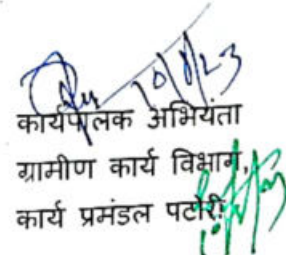 10/8/23
कार्यपालक अभियंता
ग्रामीण कार्य विभाग,
कार्य प्रमंडल पटोरी।